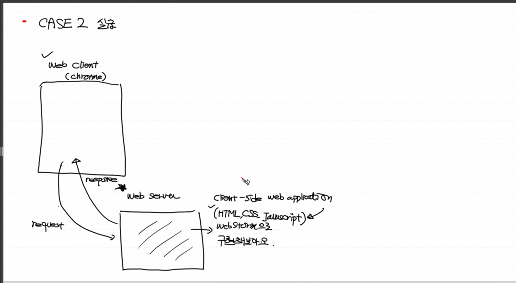 CASE 2
Web Client
(chrome)
response
Web Server
request
Client-side web application
(HTML, CSS, Javascript)